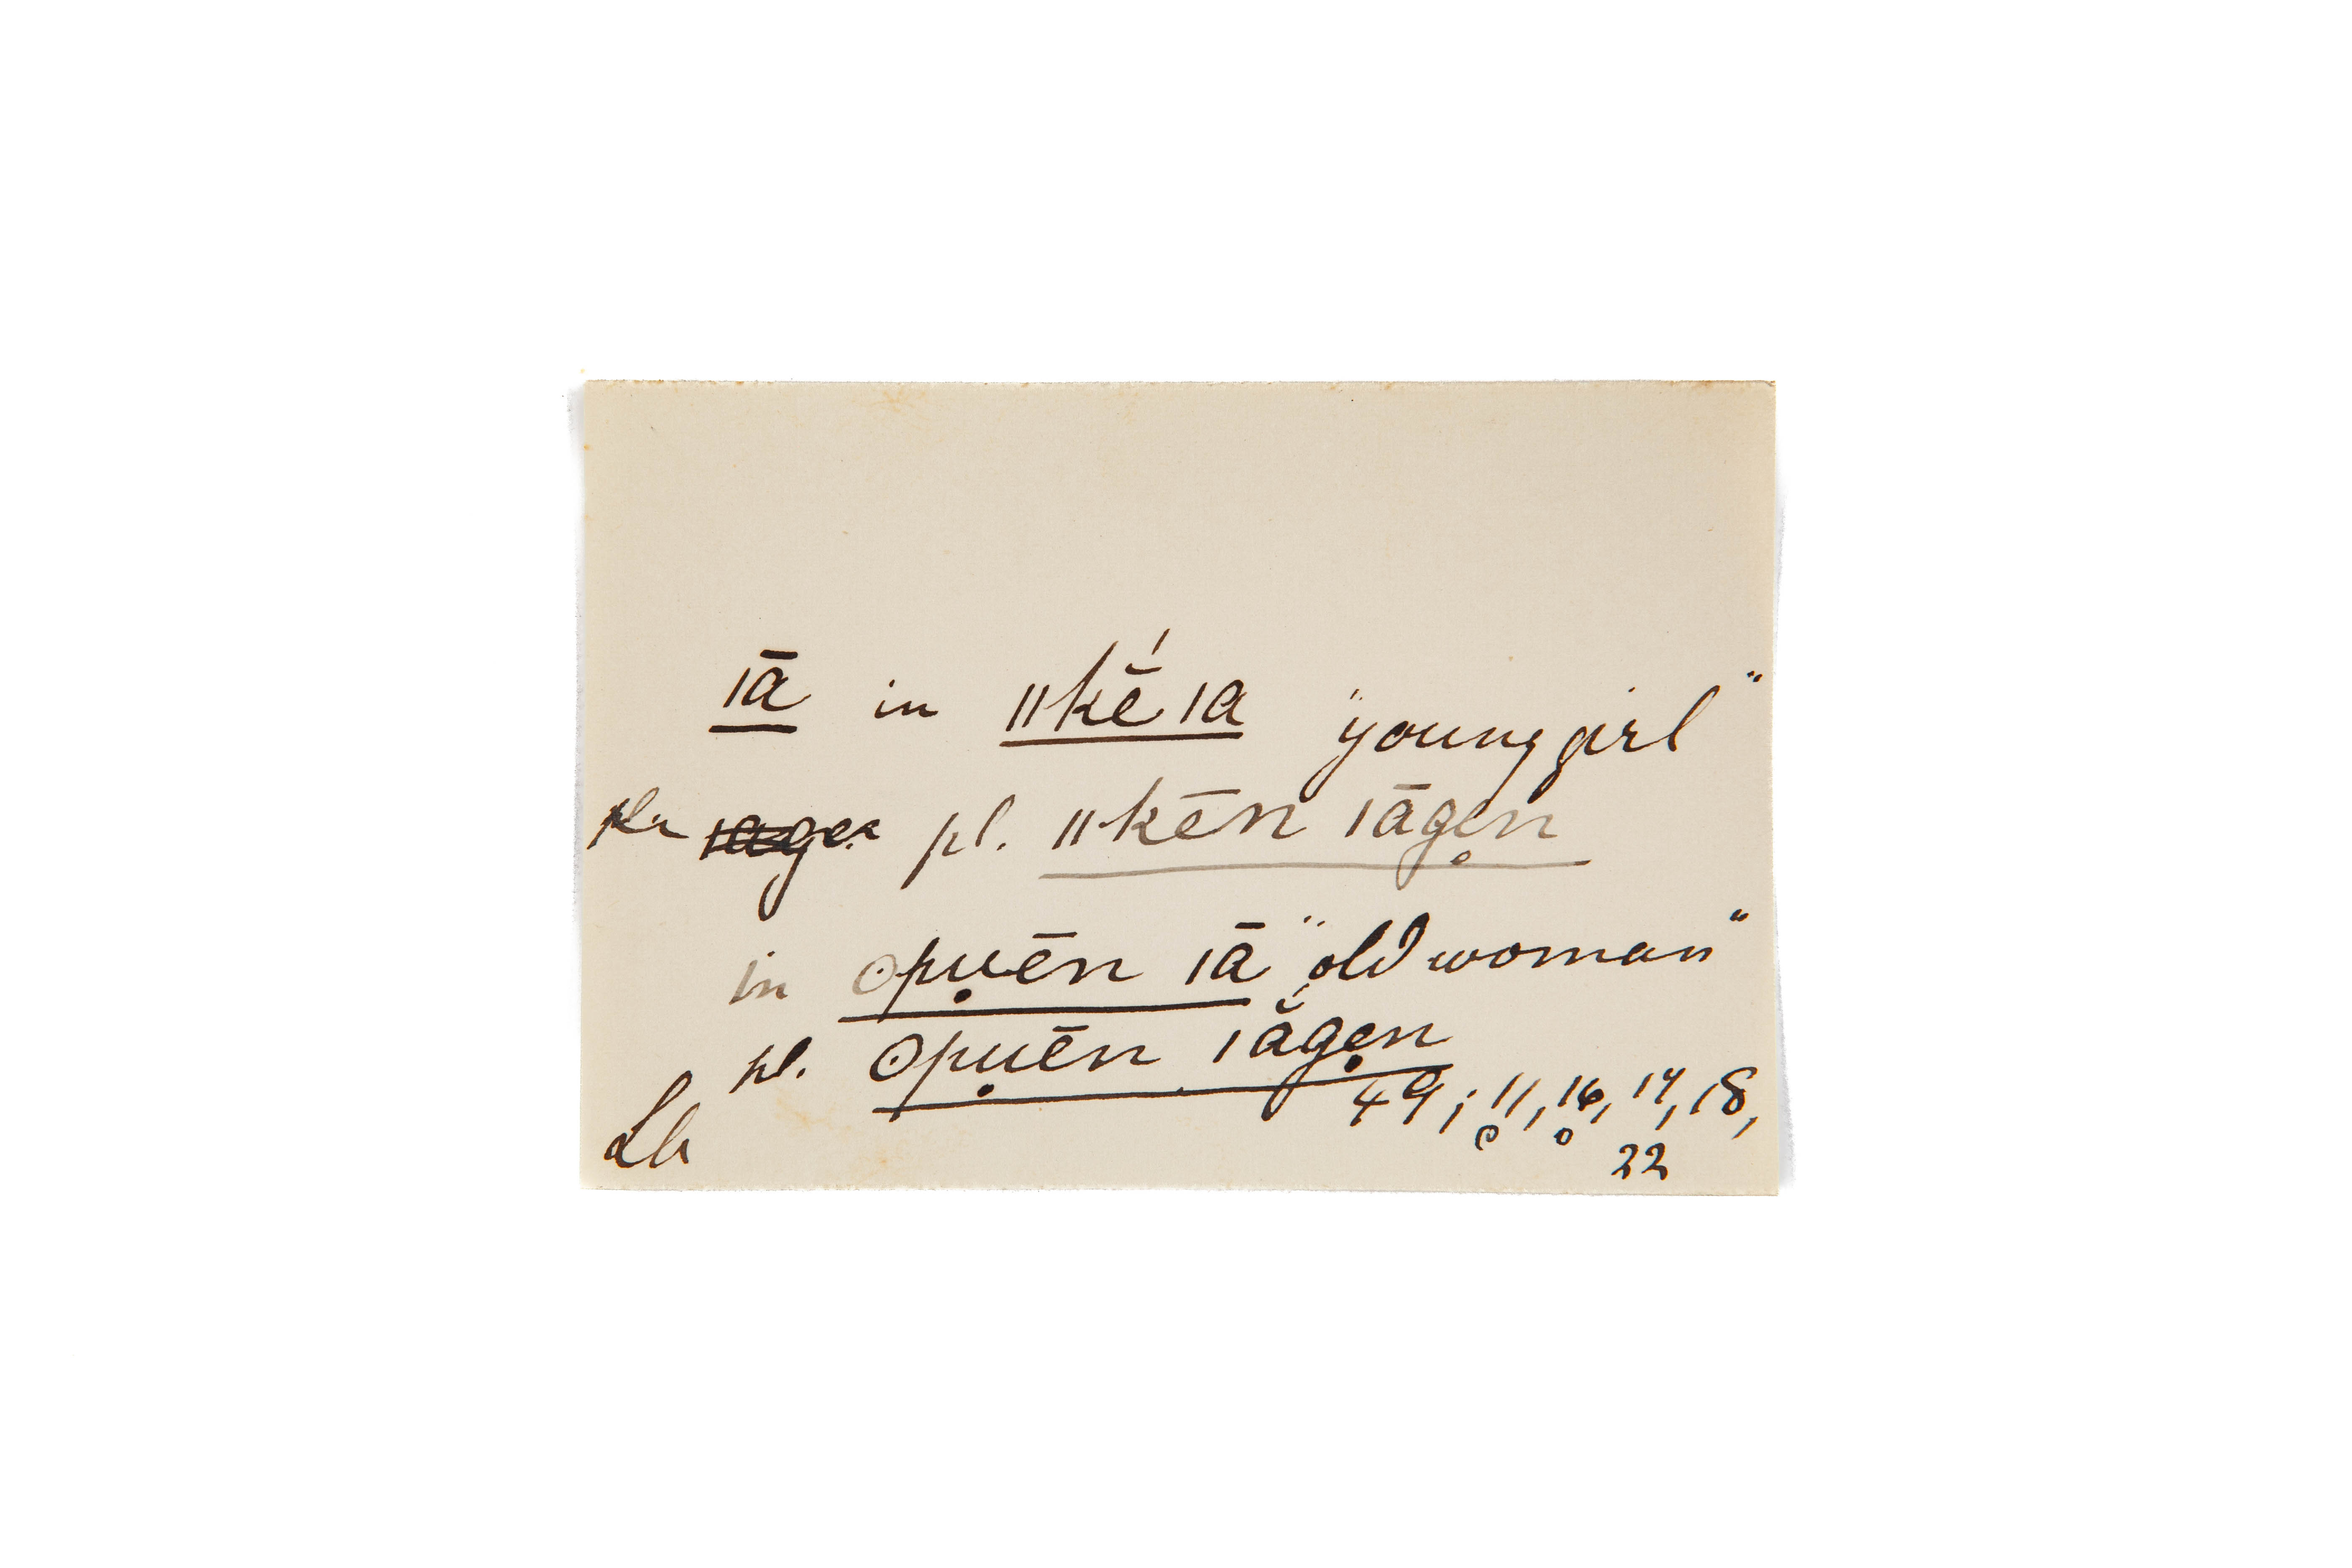 ǀā in ǁkĕ́ ǀa "young girl"
pl. ǁkēn ǀāgen̥
in ʘpu̥ēn ǀā "old woman"
pl. ʘpu̥ēn ǀăge̥n
Lb 49; 11, 16, 17, 18,
22